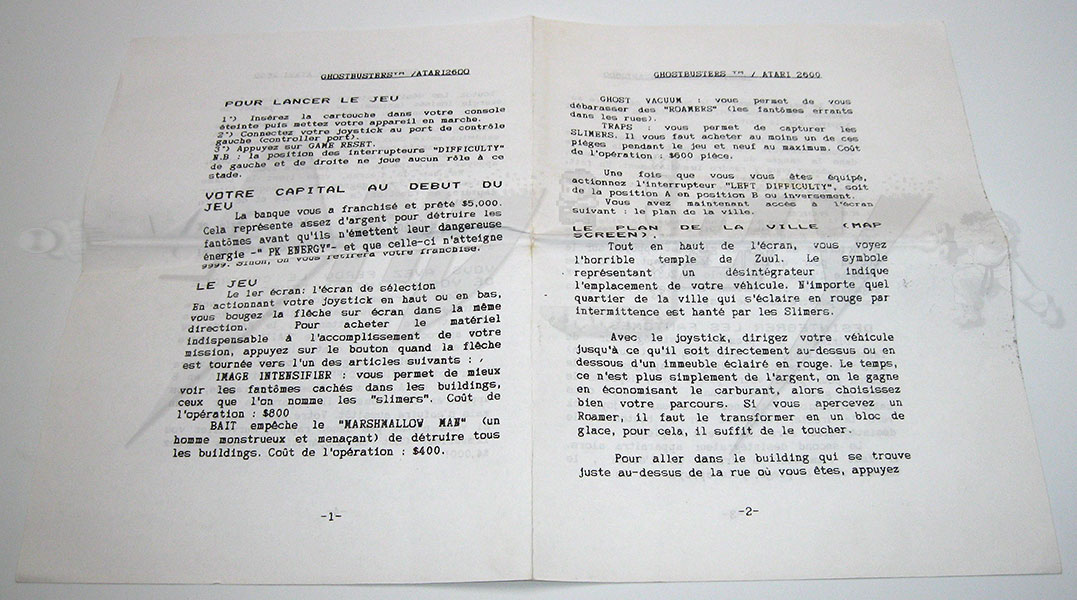 GHOSTBUSTERS™ /ATARI2600
POUR LANCER LE JEU
1°) Insérez la cartouche dans votre console
éteinte puis mettez votre appareil en marche.
2°) Connectez votre joystick au port de contrôle
gauche (controller port).
3°) Appuyez sur GAME RESET.
N.B : la position des interrupteurs "DIFFICULTY"
de gauche et de droite ne joue aucun rôle à ce
stade.
VOTRE CAPITAL AU DEBUT DU
JEU
La banque vous a franchisé et prêté $5,000.
Cela représente assez d'argent pour détruire les
fantômes avant qu'ils n'émettent leur dangereuse
énergie -" PK ENERGY"- et que celle-ci n'atteigne
9999. Sinon, on vous retirera votre franchise.
LE JEU
Le 1er écran: l'écran de sélection
En actionnant votre joystick en haut ou en bas,
vous bougez la flêche sur écran dans la même
direction. Pour acheter le matériel
indispensable à l'accomplissement de votre
mission, appuyez sur le bouton quand la flêche
est tournée vers l'un des articles suivants :
IMAGE INTENSIFIER : vous permet de mieux
voir les fantômes cachés dans les buildings,
ceux que l'on nomme les "slimers". Coût de
l'opération : $800
BAIT empêche le "MARSHMALLOW MAN" (un
homme monstrueux et menaçant) de détruire tous
les buildings. Coût de l'opération : $400.
-1-
GHOSTBUSTERS ™ / ATARI 2600
GHOST VACUUM : vous permet de vous
débarasser des "ROAMERS" (les fantômes errants
dans les rues).
TRAPS : vous permet de capturer les
SLIMERS. Il vous faut acheter au moins un de ces
pièges pendant le jeu et neuf au maximum. Coût
de l'opération : $600 pièce.
Une fois que vous vous êtes équipé,
actionnez l'interrupteur "LEFT DIFFICULTY", soit
de la position A en position B ou inversement.
Vous avez maintenant accès à l'écran
suivant : le plan de la ville.
LE PLAN DE LA VILLE (MAP
SCREEN).
Tout en haut de l'écran, vous voyez
l'horrible temple de Zuul. Le symbole
représentant un désintégrateur indique
l'emplacement de votre véhicule. N'importe quel
quartier de la ville qui s'éclaire en rouge par
intermittence est hanté par les Slimers.
Avec le joystick, dirigez votre véhicule
jusqu'à ce qu'il soit directement au-dessus ou en
dessous d'un immeuble éclairé en rouge. Le temps,
ce n'est plus simplement de l'argent, on le gagne
en économisant le carburant, alors choisissez
bien votre parcours. Si vous apercevez un
Roamer, il faut le transformer en un bloc de
glace, pour cela, il suffit de le toucher.
Pour aller dans le building qui se trouve
juste au-dessus de la rue où vous êtes, appuyez
-2-